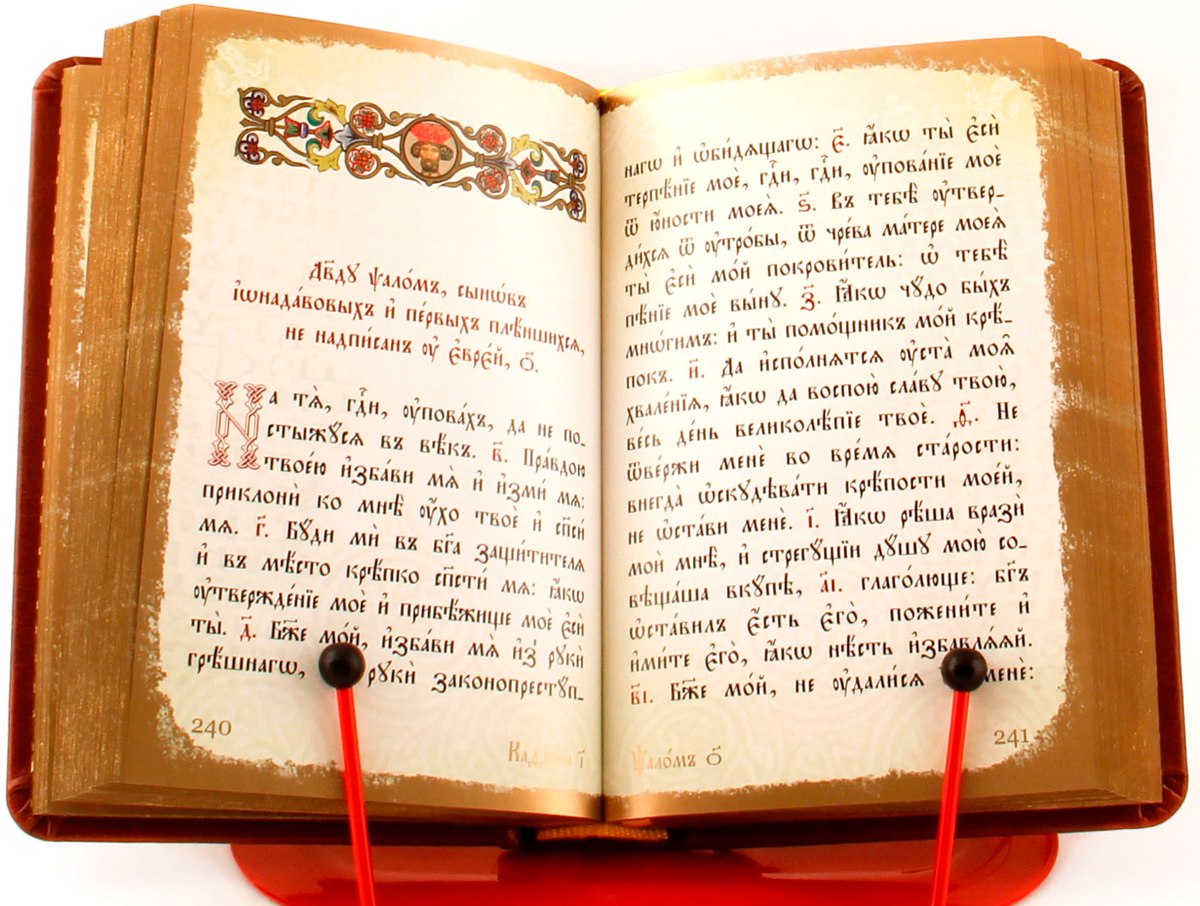 Дв҃ду ѱало́мъ, сынѡ́въ
і҆ѡнада́вовыхъ и҆ пе́рвыхъ плѣ́ншихсѧ,
не надпи́санъ ᲂу҆ є҆вре́й, о҃.
На тѧ̀, гдⷭ҇и, ᲂу҆пова́хъ, да не по_
стыжꙋ́сѧ въ вѣ́къ. в҃. Пра́вдою
твое́ю и҆зба́ви мѧ̀ и҆ и҆зми́ мѧ:
приклонѝ ко мнѣ̀ ᲂу҆́хо твоѐ и҆ сп҃сѝ
мѧ. г҃. Бꙋ́ди мѝ въ бг҃а защи́тителѧ
и҆ въ мѣ́сто крѣ́пко сп҃стѝ мѧ: ꙗ҆́кѡ
ᲂу҆твержде́нїе моѐ и҆ прибѣ́жище моѐ є҆сѝ
ты̀. д҃. Бж҃е мо́й, и҆зба́ви мѧ̀ и҆з̾ рꙋкѝ
грѣ́шнагѡ, рꙋкѝ законопрестꙋ́п_
240
Каѳі́сма і҃
нагѡ и҆ ѡ҆би́дѧщагѡ: є҃. ꙗ҆́кѡ ты̀ є҆сѝ
терпѣ́нїе моѐ, гдⷭ҇и, гдⷭ҇и, ᲂу҆пова́нїе моѐ
ѿ ю҆́ности моеѧ̀. ѕ҃. Въ тебѣ̀ ᲂу҆твер_
ди́хсѧ ѿ ᲂу҆тро́бы, ѿ чре́ва ма́тере моеѧ̀
ты̀ є҆сѝ мо́й покрови́тель: ѡ҆ тебѣ̀
пѣ́нїе моѐ вы́нꙋ. з҃. Ꙗ҆́кѡ чꙋ́до бы́хъ
мнѡ́гимъ: и҆ ты̀ помо́щникъ мо́й крѣ́_
покъ. и҃. Да и҆спо́лнѧтсѧ ᲂу҆ста̀ моѧ̑
хвале́нїѧ, ꙗ҆́кѡ да воспою̀ сла́вꙋ твою̀,
ве́сь де́нь великолѣ́пїе твоѐ. ѳ҃. Не
ѿве́ржи менѐ во вре́мѧ ста́рости:
внегда̀ ѡ҆скꙋдѣва́ти крѣ́пости мое́й,
не ѡ҆ста́ви менѐ. і҃. Ꙗ҆́кѡ рѣ́ша вразѝ
мои̑ мнѣ̀, и҆ стрегꙋ́щїи дꙋ́шꙋ мою̀ со_
вѣща́ша вкꙋ́пѣ, а҃і. глаго́люще: бг҃ъ
ѡ҆ста́вилъ є҆́сть є҆го̀, пожени́те и҆
и҆ми́те є҆го̀, ꙗ҆́кѡ нѣ́сть и҆збавлѧ́ѧй.
в҃і. Бж҃е мо́й, не ᲂу҆дали́сѧ менѐ:
241
Ѱало́мъ о҃